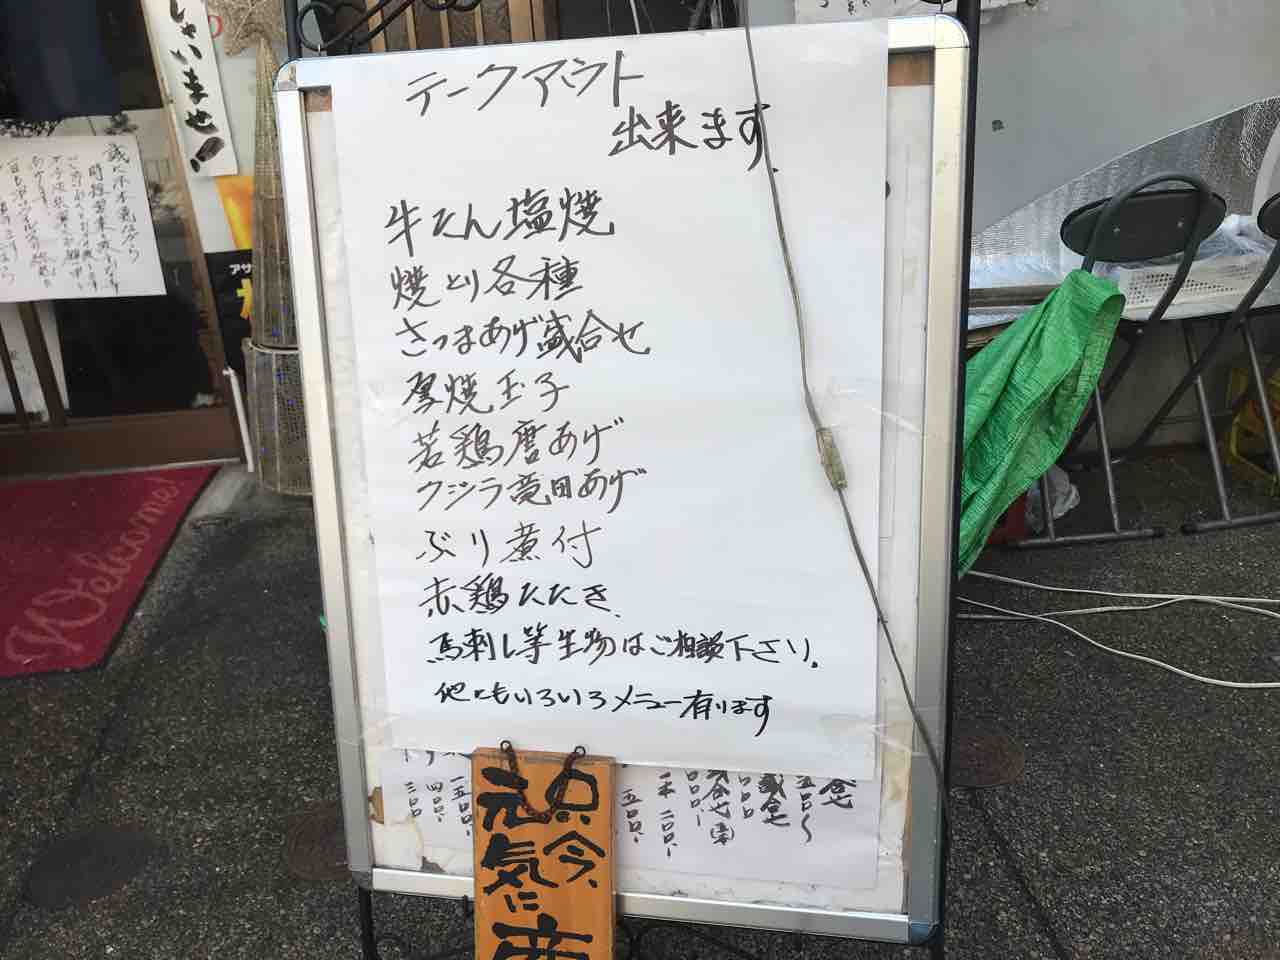 テークアウト
出来ます
牛たん塩焼
焼とり各種
さつまあげ盛合せ
厚焼玉子
若鶏唐あげ
クジラ竜田あげ
ぶり煮付
赤鶏たたき
馬刺し等生物はご相談下さり。
他にもいろいろメニュー有ります
只今、
元気に
しゃいませ!
Welcome!
アサ